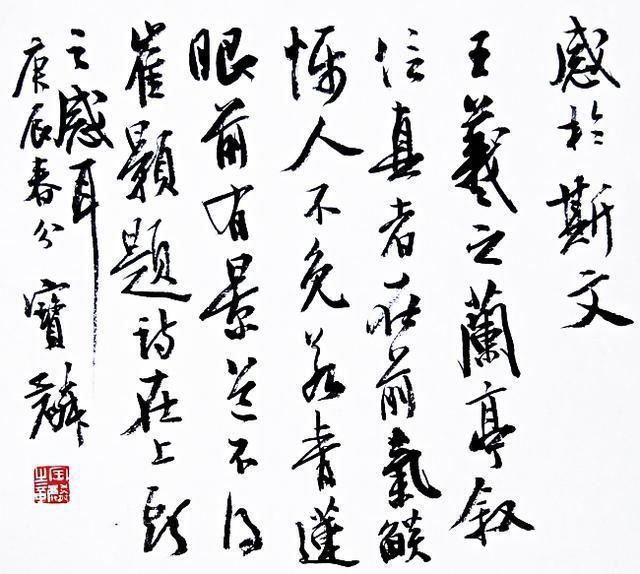 感於斯文
王羲之蘭亭叙
信真者在前氣燄
怖人不免若青蓮
眼前有景道不得
崔顥題詩在上頭
之感耳
庚辰春分寶麟